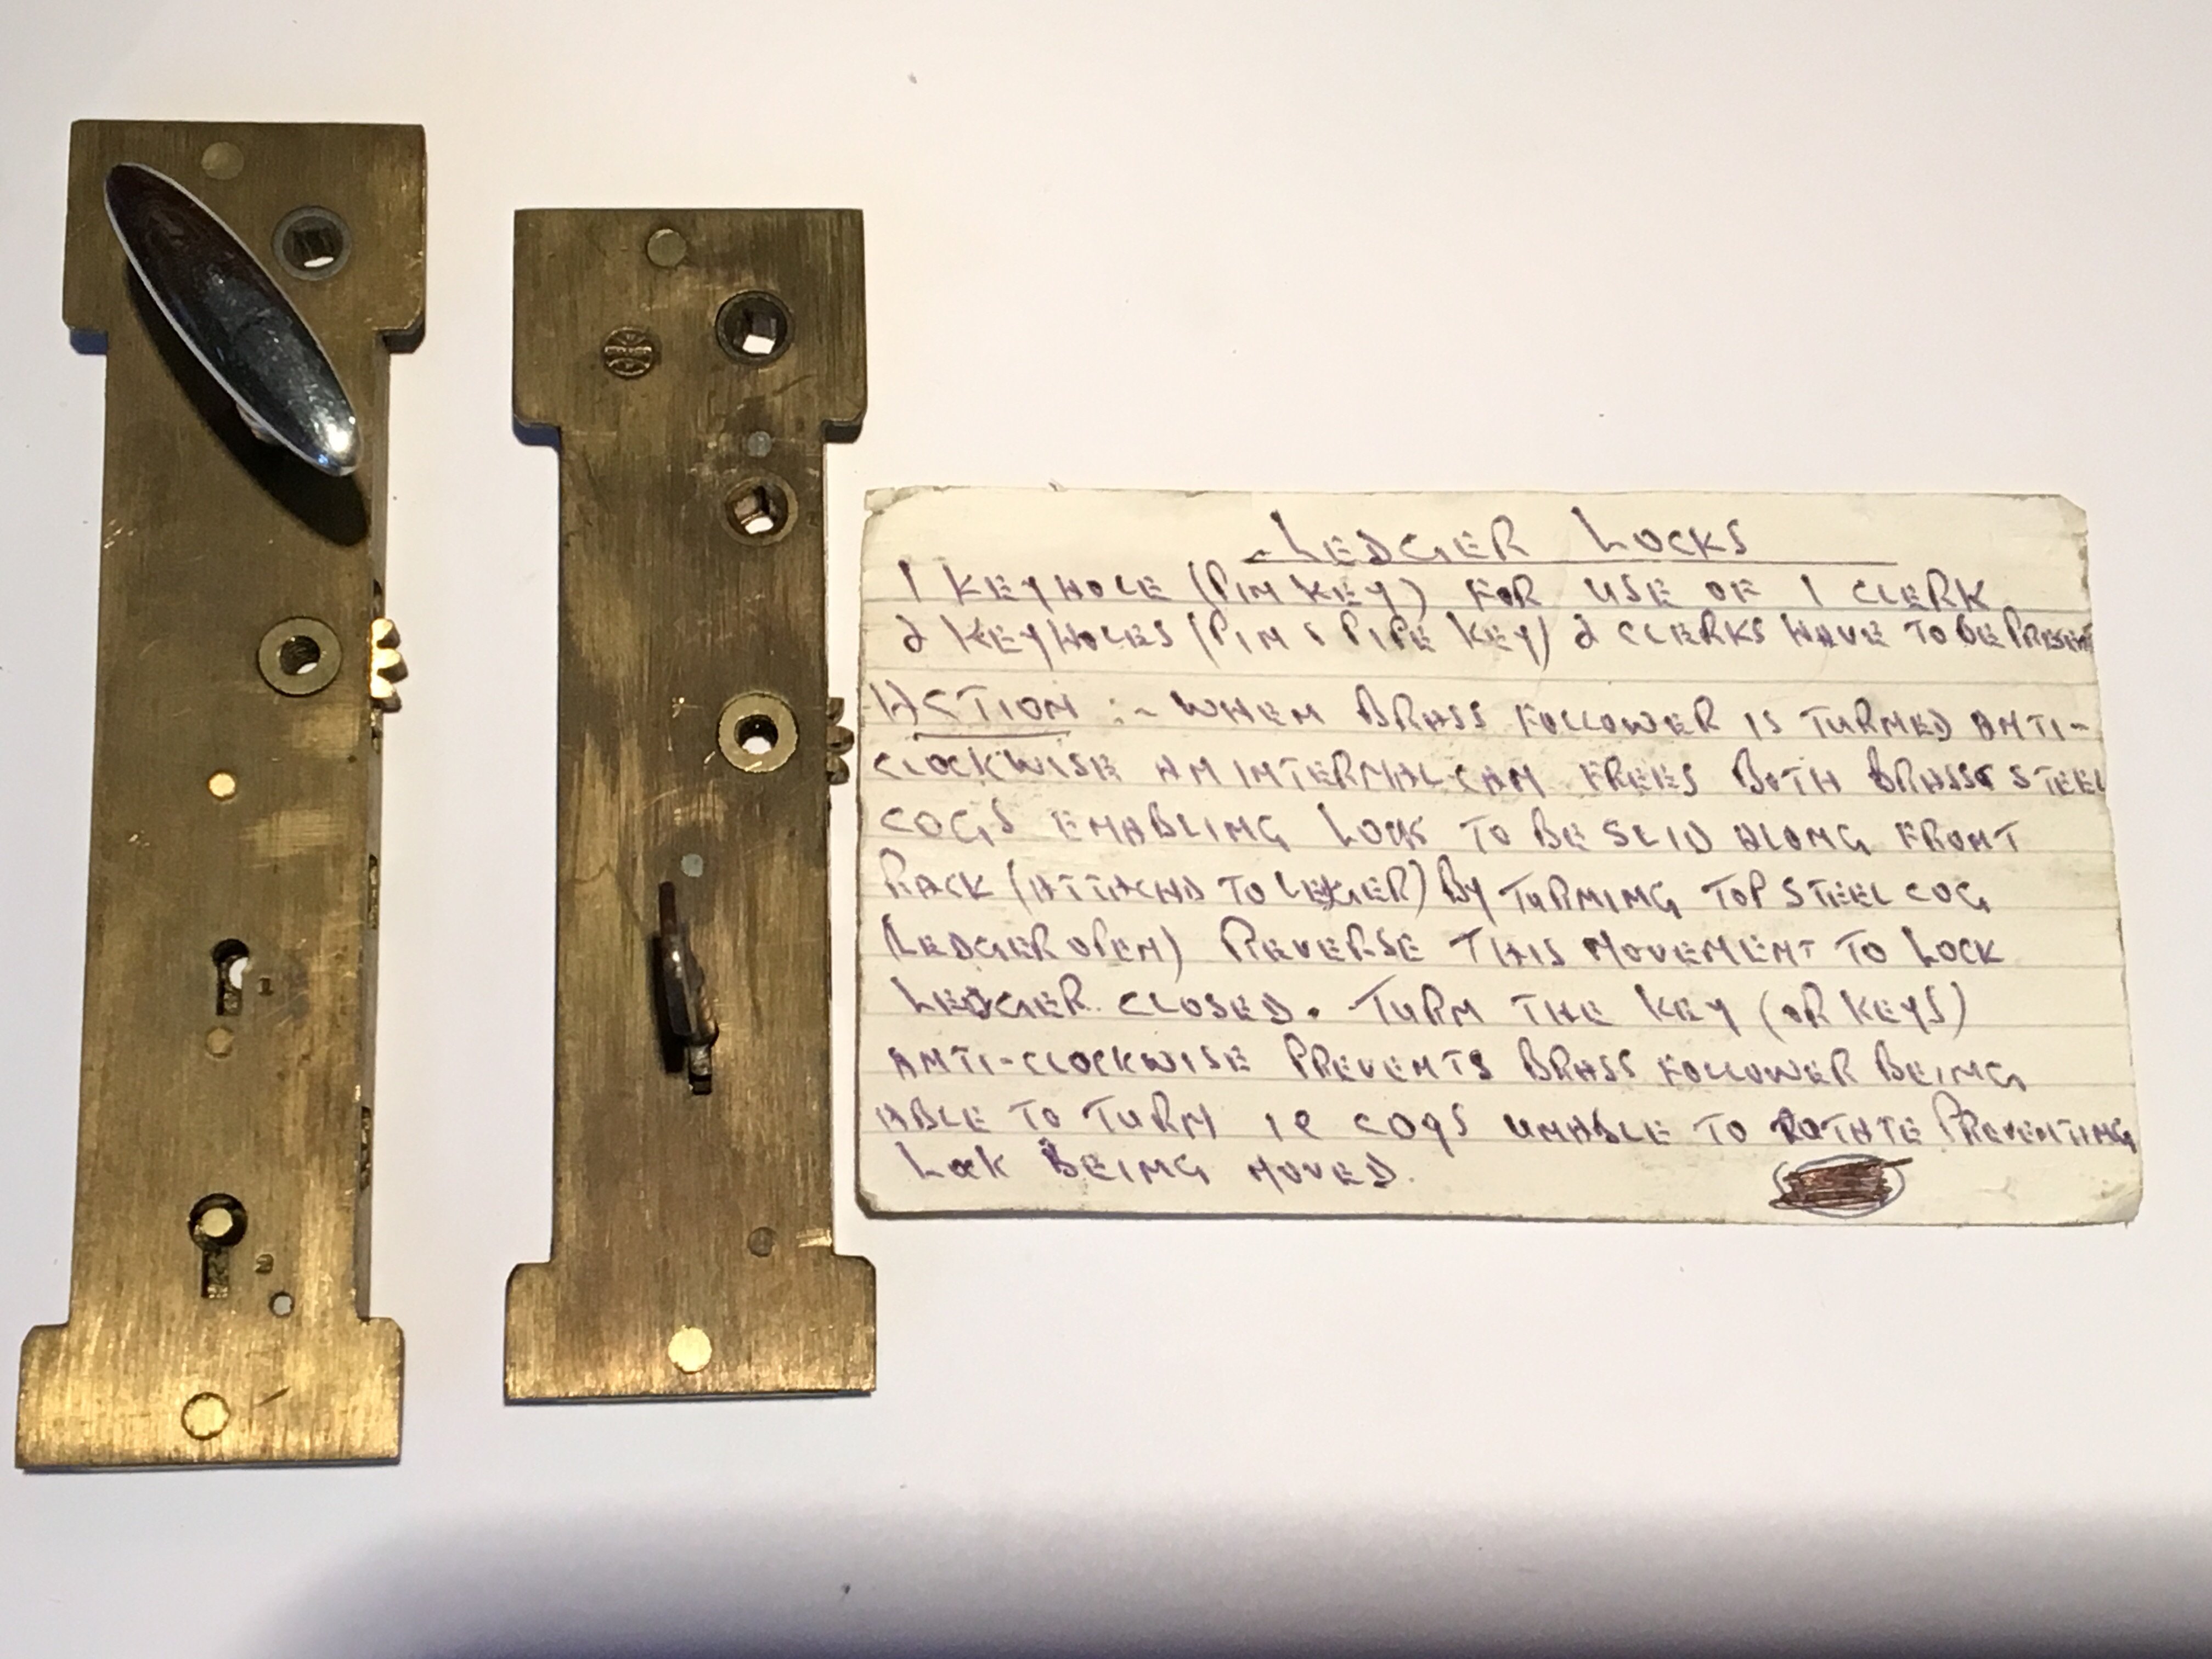 LEDGER LOCKS
1 KEYHOLE (PIN KEY) FOR USE OF 1 CLERK
2 KEYHOLES (PIN & PIPE KEY) 2 CLERKS HAVE TO BE PRESENT
ACTION :- WHEN BRASS FOLLOWER IS TURNED ANTI-
CLOCKWISE AN INTERNAL CAM FREES BOTH BRASS & STEEL
COGS ENABLING LOCK TO BE SLID ALONG FRONT
RACK (ATTACHD TO LEDGER) BY TURNING TOP STEEL COG
(LEDGER OPEN) REVERSE THIS MOVEMENT TO LOCK
LEDGER CLOSED. TURN THE KEY (OR KEYS)
ANTI-CLOCKWISE PREVENTS BRASS FOLLOWER BEING
ABLE TO TURN ie COGS UNABLE TO ROTATE PREVENTING
LOCK BEING MOVED.
1
2